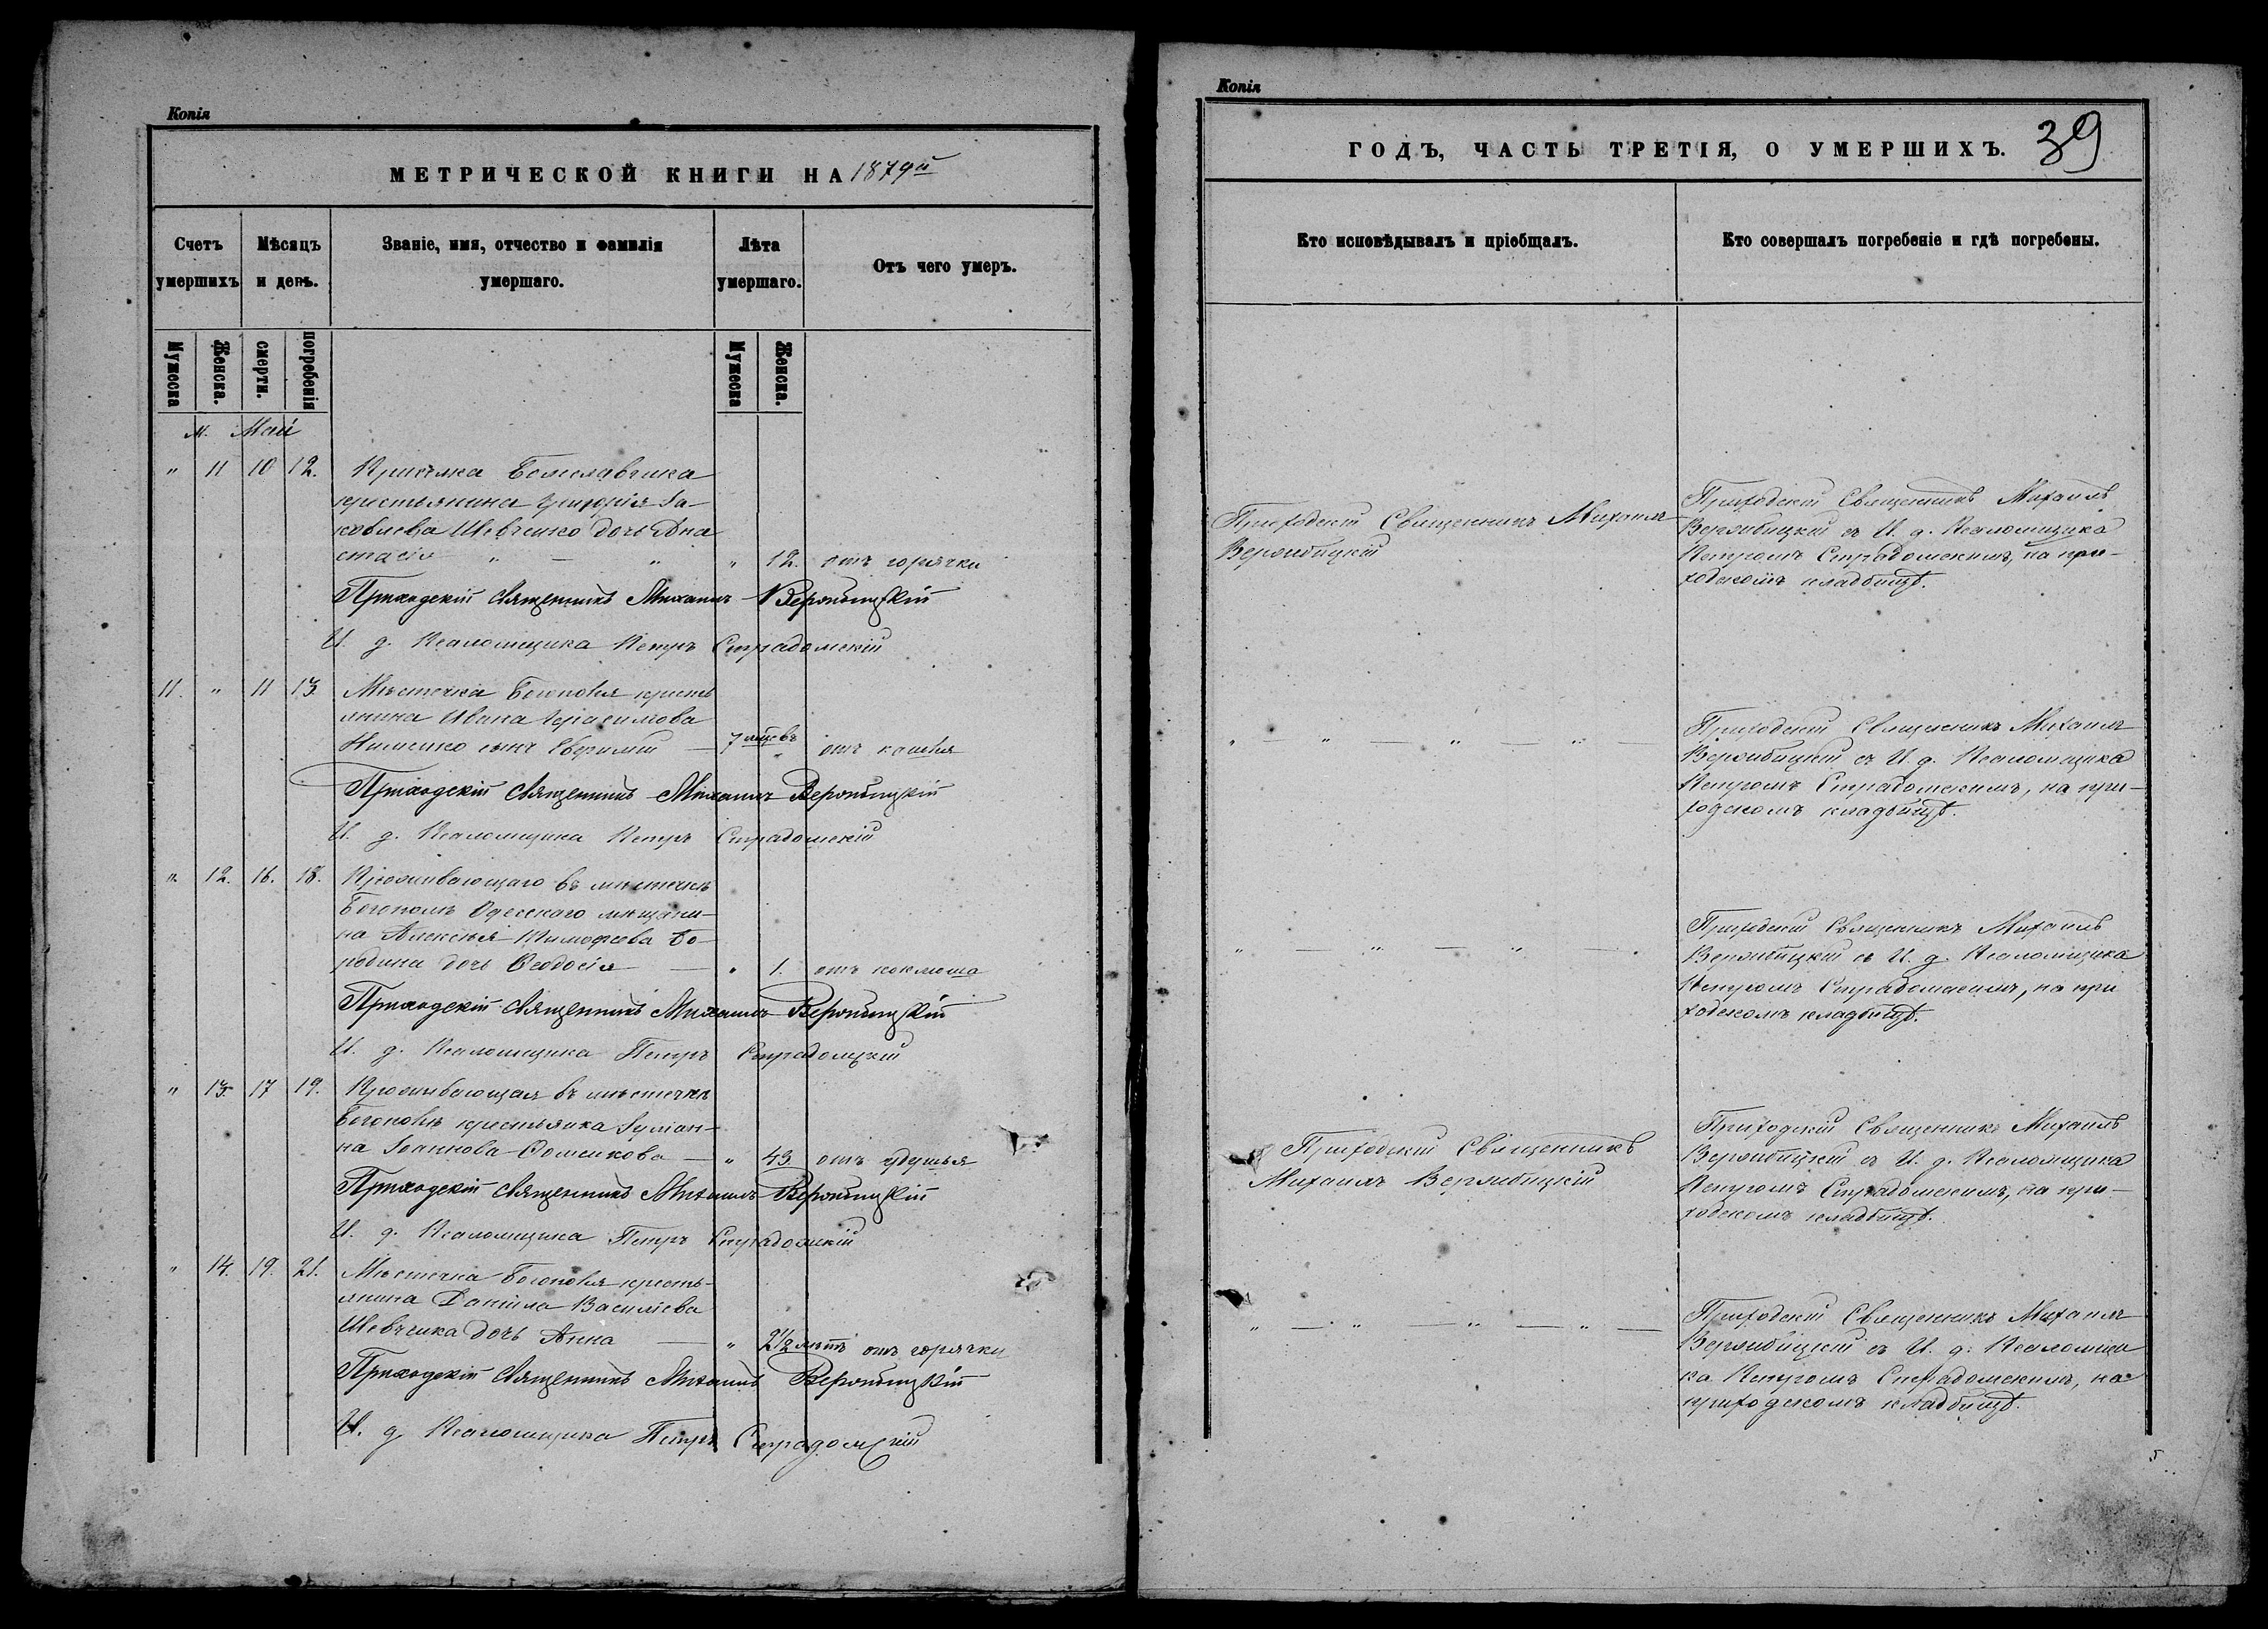 Копія
МЕТРИЧЕСКОЙ КНИГИ НА 1879й
Счетъ умершихъ
Мѣсяцъ и день.
Званіе, имя, отчество и фамилія умершаго.
Лѣта умершаго.
Отъ чего умеръ.
Мужеска
Женска.
смерти.
погребенія
Мужеска
Женска.
М. Май
" 11 10 12.
крестьянина Григорія Іа-
ковлева Шевченко дочь Ана
стасія " — " " 12. отъ горячки
Приходскій Священникъ Михаилъ Вержбицкій
И. д. Псаломщика Петръ Страдомскій
11. " 11 13. Мѣстечка Богополя кресть
янина Ивана Герасимова
сынъ Евфимій — 7 мѣсевъ " отъ кашля
Приходскій Священникъ Михаилъ Вержбицкій
И. д. Псаломщика Петръ Страдомскій
" 12. 16. 18. Проживающаго въ мѣстечкѣ
Богополѣ Одесскаго мѣщани-
на Алексѣя Тимофеева Бо-
родина дочь Ѳеодосія — " 1. отъ коклюша
Приходскій Священникъ Михаилъ Вержбицкій
И. д. Псаломщика Петръ Страдомскій
" 13. 17 19. Проживающая въ мѣстечкѣ
Богополѣ крестьянка Іуліан-
на Іоаннова — " 43 отъ удушья
Приходскій Священникъ Михаилъ Вержбицкій
И. д. Псаломщика Петръ Страдомскій
" 14. 19. 21. Мѣстечка Богополя кресть-
янина Даніила Василіева
Шевчика дочь Анна — " 2½ лѣтъ отъ горячки
Приходскій Священникъ Михаилъ Вержбицкій
И. д. Псаломщика Петръ Страдомскій
Копія
ГОДЪ, ЧАСТЬ ТРЕТІЯ, О УМЕРШИХЪ. 39
Кто исповѣдывалъ и пріобщалъ.
Кто совершалъ погребеніе и гдѣ погребены.
Приходскій Священникъ Михаилъ
Вержбицкій
Приходскій Священникъ Михаилъ
Вержбицкій съ И. д. Псаломщика
Петромъ Страдомскимъ, на при-
ходскомъ кладбищѣ.
" — " — " — " —
Приходскій Священникъ Михаилъ
Вержбицкій съ И. д. Псаломщика
Петромъ Страдомскимъ, на при-
ходскомъ кладбищѣ.
" — " — " —
Приходскій Священникъ Михаилъ
Вержбицкій съ И. д. Псаломщика
Петромъ Страдомскимъ, на при
ходскомъ кладбищѣ.
Приходскій Священникъ
Михаилъ Вержбицкій
Приходскій Священникъ Михаилъ
Вержбицкій съ И. д. Псаломщика
Петромъ Страдомскимъ, на при-
ходскомъ кладбищѣ.
" — " — " — " —
Приходскій Священникъ Михаилъ
Вержбицкій съ И. д. Псаломщи
ка Петромъ Страдомскимъ, на
приходскомъ кладбищѣ.